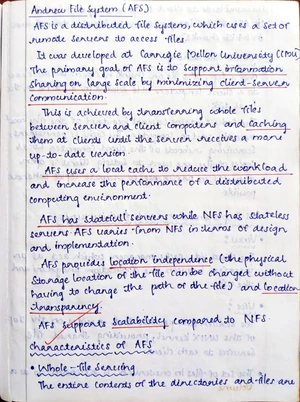 Andrew File System (AFS)
AFS is a distributed file system, which uses a set of
remote servers to access files
It was developed at Carnegie Mellon University (CMU).
The primary goal of AFS is to support information
sharing on large scale by minimizing client-server
communication.
This is achieved by transferring whole files
between server and client computers and caching
them at clients until the server receives a more
up-to-date version
AFS uses a local cache to reduce the workload
and increase the performance of a distributed
computing environment.
AFS has statefull servers while NFS has stateless
servers. AFS varies from NFS in terms of design
and implementation.
AFS provides location independence (the physical
storage location of the file can be changed without
having to change the path of the file) and location
transparency.
AFS supports scalability compared to NFS.
characteristics of AFS
• Whole-file serving
The entire contents of the directories and files are